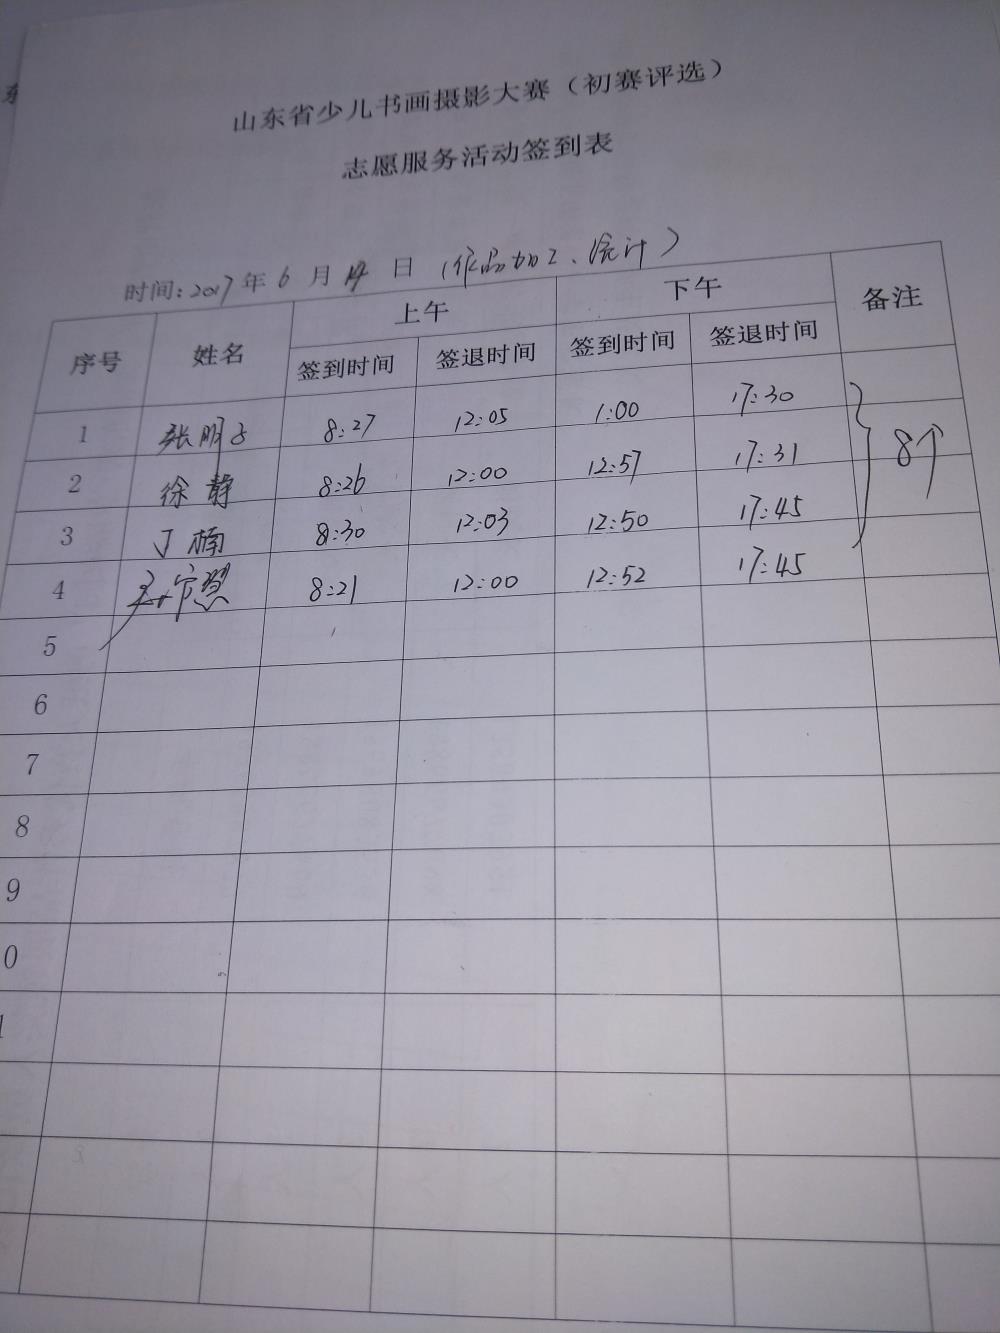 山东省少儿书画摄影大赛（初赛评选）
志愿服务活动签到表
时间：2017年6月14日（作品加工、统计）
序号 姓名 上午 下午 备注
签到时间 签退时间 签到时间 签退时间
1 张明 8:27 12:05 1:00 17:30
2 徐静 8:26 12:00 12:57 17:31
8个
3 丁楠 8:30 12:03 12:50 17:45
4 8:21 12:00 12:52 17:45
5
6
7
8
9
0
1